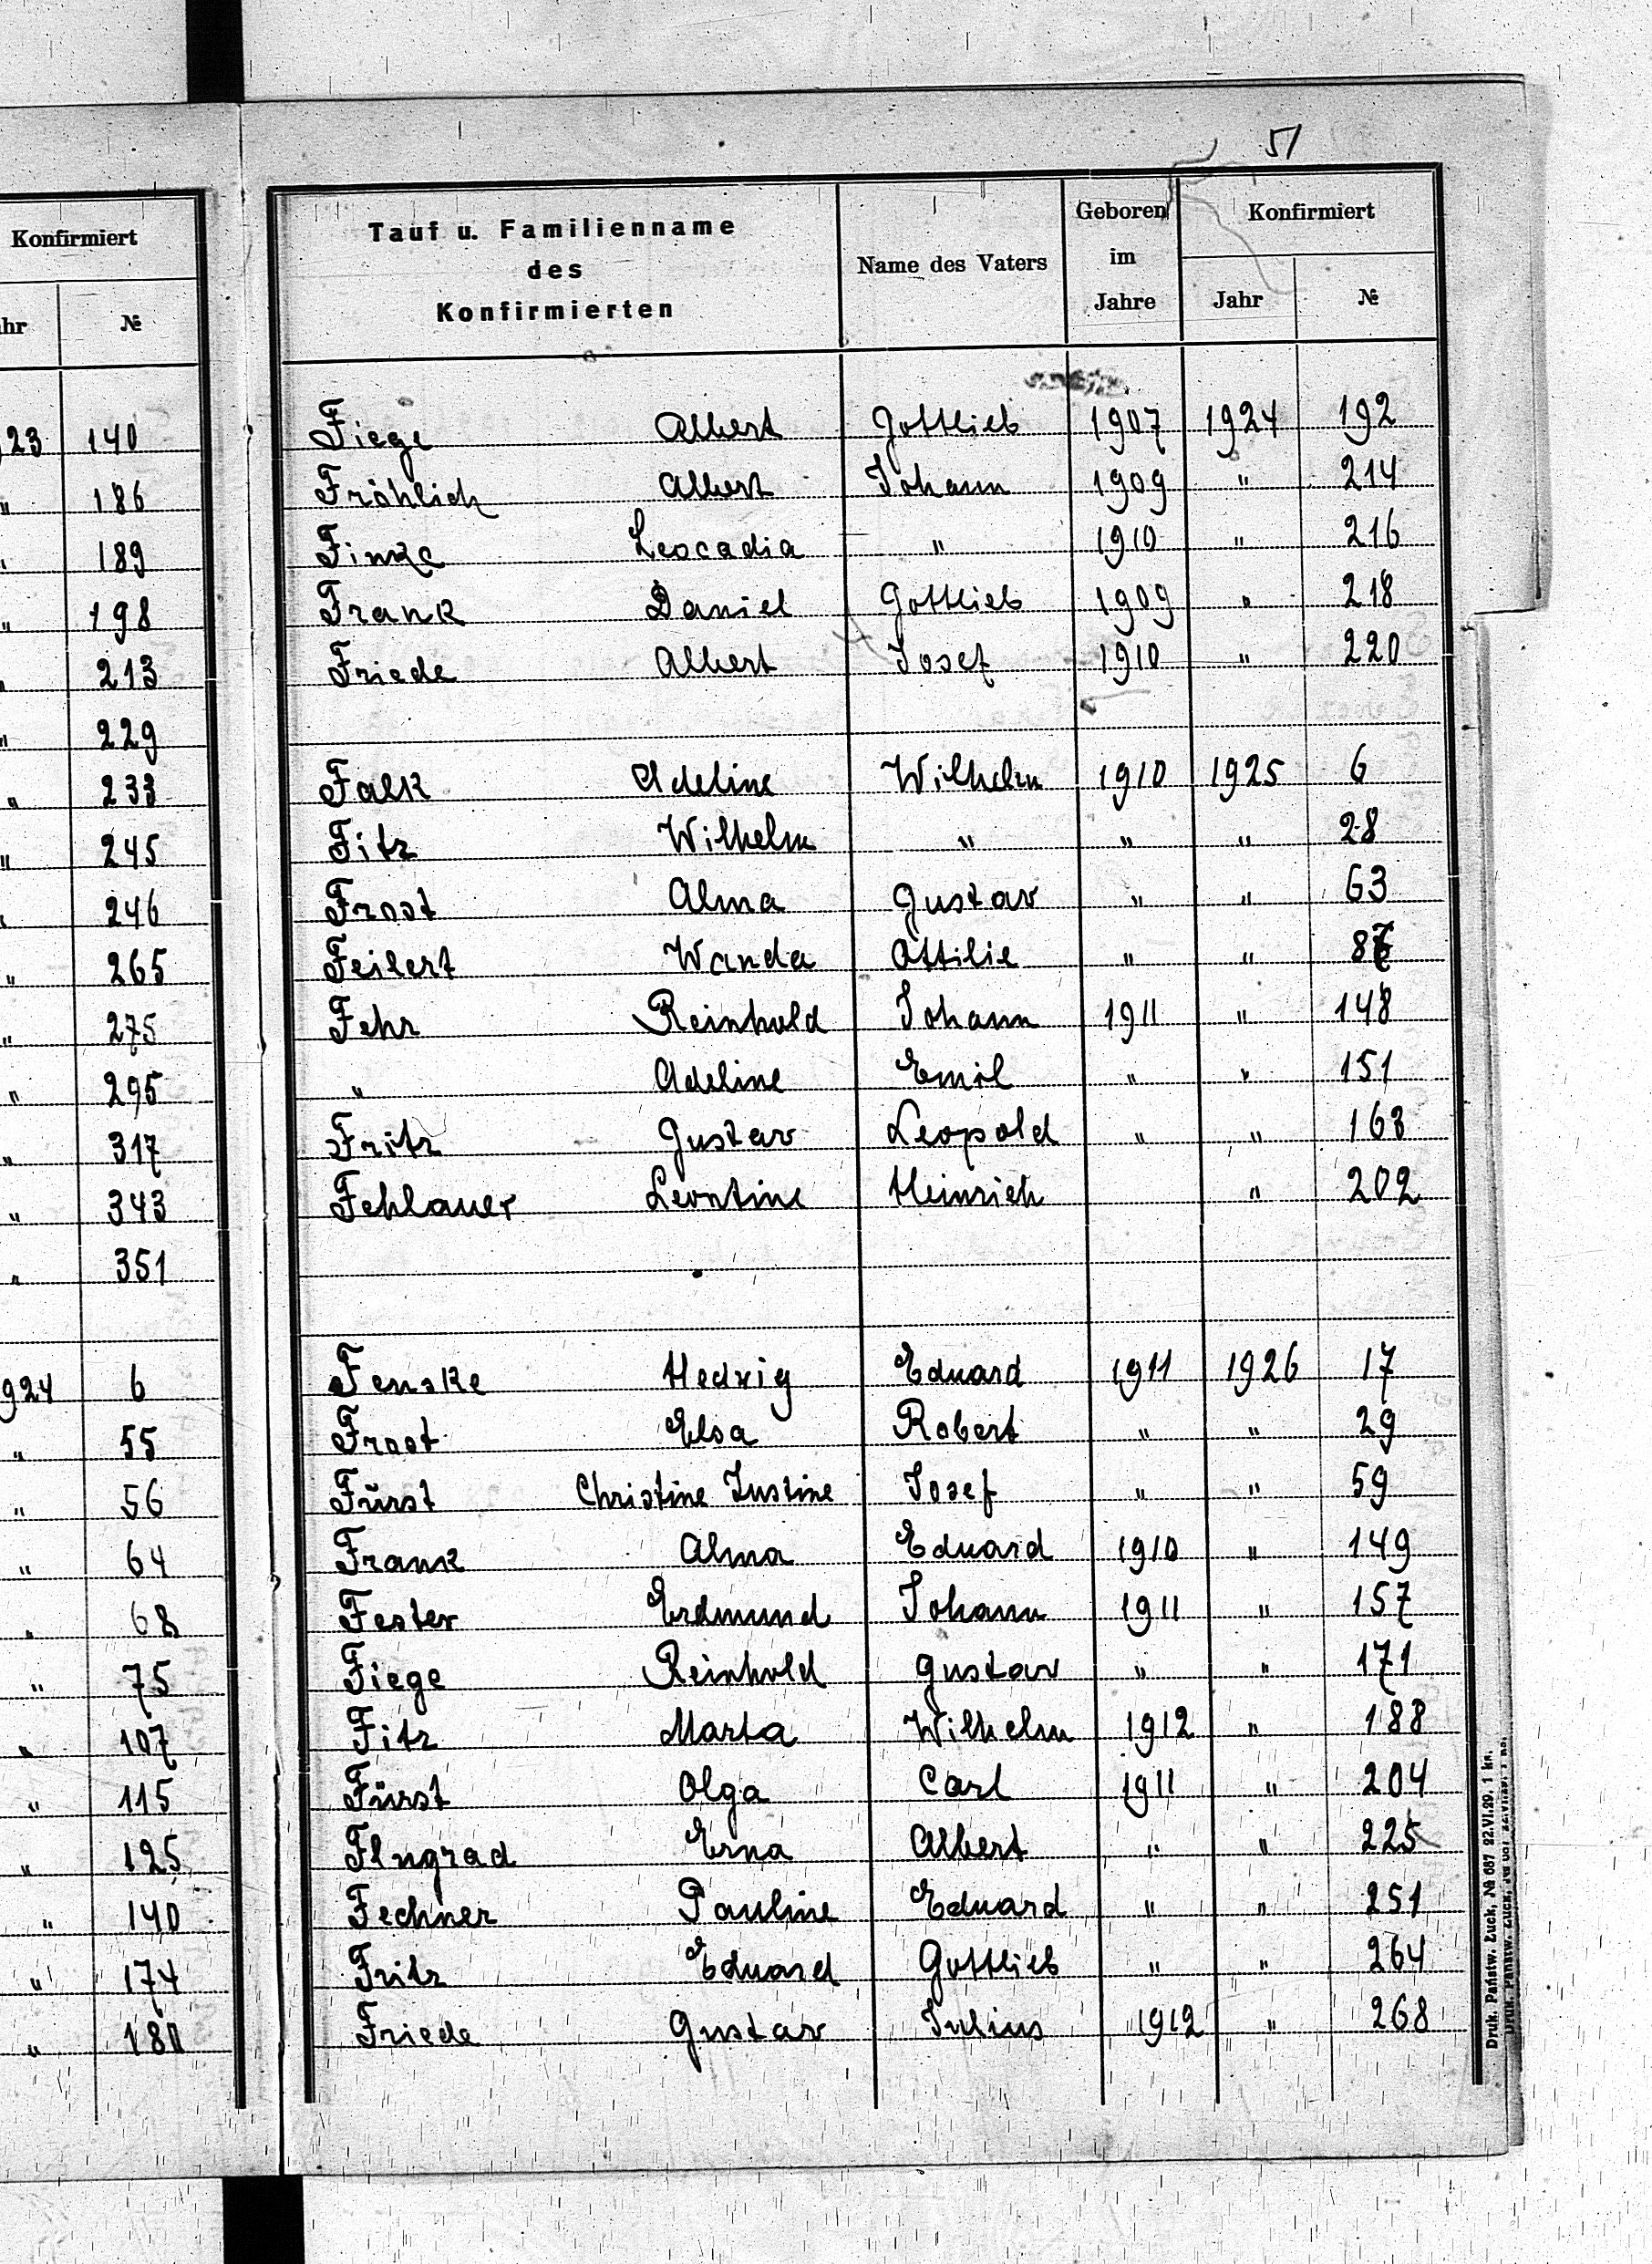 51
Konfirmiert
hr №
23 140
" 186
" 189
" 198
" 213
" 229
" 233
" 245
" 246
" 265
" 275
" 295
" 317
" 343
" 351
924 6
" 55
" 56
" 64
" 68
" 75
" 107
" 115
" 125
" 140
" 174
" 180
Tauf u. Familienname des Konfirmierten Name des Vaters Geboren im Jahre Konfirmiert Jahr №
Fiege Albert Gottlieb 1907 1924 192
Fröhlich Albert Johann 1909 " 214
Finke Leocadia " 1910 " 216
Frank Daniel Gottlieb 1909 " 218
Friede Albert Josef 1910 " 220
Falk Adeline Wilhelm 1910 1925 6
Fitz Wilhelm " " " 28
Frost Alma Gustav " " 63
Feilert Wanda Ottilie " " 87
Fehr Reinhold Johann 1911 " 148
" Adeline Emil " " 151
Fritz Gustav Leopold " " 163
Fehlauer Leontine Heinrich " 202
Fenske Hedvig Eduard 1911 1926 17
Frost Elsa Robert " " 29
Fürst Christine Justine Josef " " 59
Frank Alma Eduard 1910 " 149
Fester Erdmund Johann 1911 " 157
Fiege Reinhold Gustav " " 171
Fitz Marta Wilhelm 1912 " 188
Fürst Olga Carl 1911 " 204
Flngrad Erna Albert " " 225
Fechner Pauline Eduard " " 251
Fritz Eduard Gottlieb " " 264
Friede Gustav Julius 1912 " 268
Druk. Państw. Łuck, № 687 22.VI.29. 1 kn.